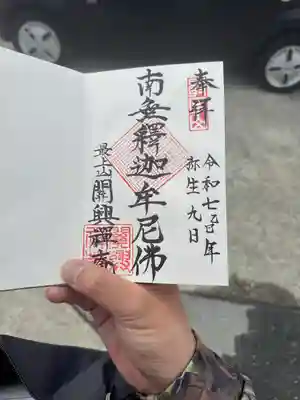 奉拝
令和七乙巳年
弥生九日
南無釋迦牟尼佛
最上山
開興禅庵